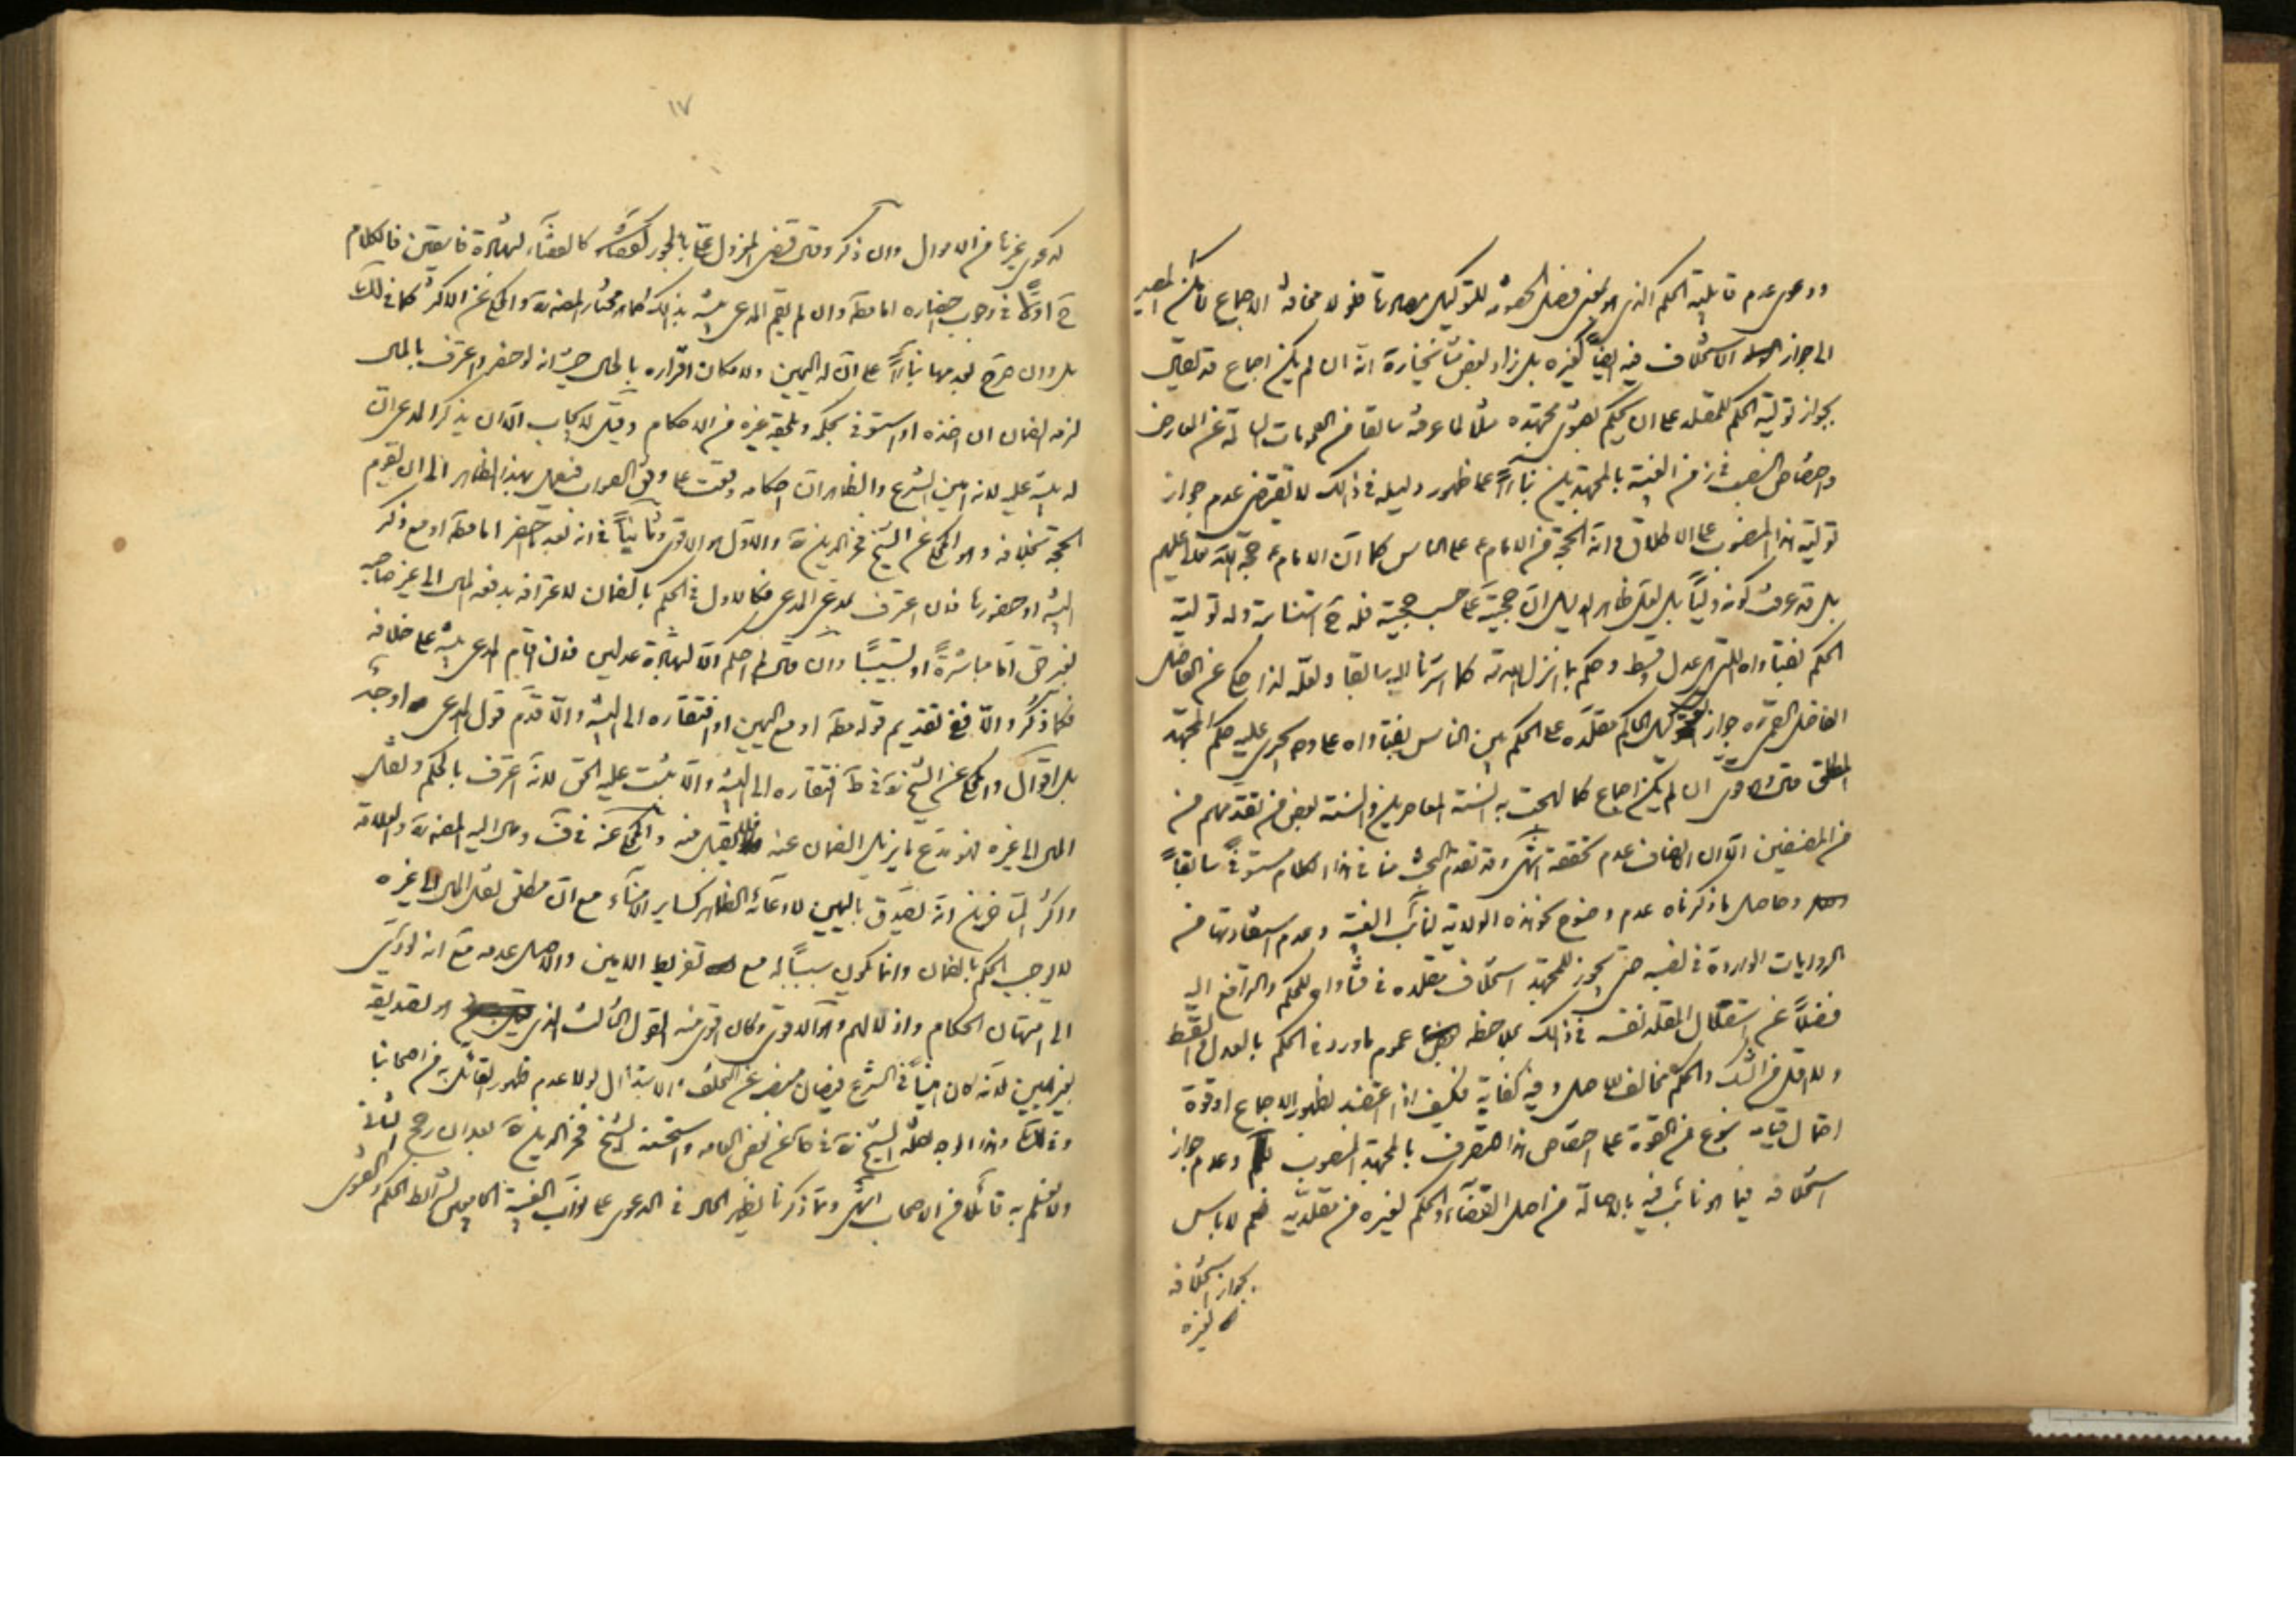 ودعوى عدم قابلية الحكم الذي هو بمعنى فصل الخصومة للتوكيل فلا مخافة الاجماع
الى جواز الاستخلاف فيه ايضاً كغيره بل زاد بعض مشايخنا انه ان لم يكن اجماع قد يقال
بجواز تولية الحكم للمقلد على ان يحكم بفتوى مجتهده مثلاً لما عرفته سابقا من العمومات السالمة عن المعارض
واختصاص النصب في زمن الغيبة بالمجتهدين بناءً على ظهور دليله في ذلك لا يقتضي عدم جواز
تولية هذا المنصوب على الاطلاق وانه الحجة من الامام ع على الناس كما ان الامام ع حجة الله عليهم
بل قد عرفت كونه ولياً بل لعل ظاهر الدليل ان حجيته على حسب حجيته فله ح استنابة وله تولية
الحكم بفتاواه التي هي عدل وقسط وحكم بما انزل الله كما اشرنا اليه سابقا ولعله لذا حكى عن الفاضل
الفاضل القمي ره جواز توكيل الحاكم مقلده على الحكم بين الناس بفتاواه على وجه يجري عليه حكم المجتهد
المطلق وهو قوي ان لم يكن اجماع كما لهجت به السنة المعاصرين والسنة بعض من تقدمهم من
من المصنفين الا ان الانصاف عدم تحققه انتهى وقد تقدم البحث منا في هذا الكلام مستوفى سابقاً
وحاصل ما ذكرناه عدم وضوح كون هذه الولاية لنائب الغيبة وعدم استفادتها من
الروايات الواردة في نصبه حتى يجوز للمجتهد استخلاف مقلده في فتاواه للحكم والترافع اليه
فضلاً عن استقلال المقلد نفسه في ذلك بملاحظة عموم ما ورد في الحكم بالعدل والقسط
ولا اقل من الشك والحكم مخالف للاصل وفيه كفاية فكيف اذا اعتضد بظهور الاجماع او قوة
احتمال قيامه نوع من القوة على اختصاص هذا التصرف بالمجتهد المنصوب وعدم جواز
استخلافه فيما هو نائب فيه بالاصالة من اصل القضاء والحكم لغيره من مقلديه نعم لا باس
بجواز استخلافه
لغيره
١٧
كدعوى غيرها من الاموال وان ذكر وقال قضى المعزول علي بالجور كالقضاء بشهادة فاسقين فالكلام
ح اولاً في وجوب احضاره مطلقا وان لم يقم المدعي بينة بذلك كما هو مختار المصنف ره والمحكي عن الاكثر كما في لك
بل وان صرح بعدمها بناءً على ان له اليمين ولامكان اقراره بالحال حيث انه لو حضر واعترف بالمال
لزمه الضمان ان اخذه او استوفى بحكمه ويلحقه غيره من الاحكام وقيل لا يجاب الا ان يذكر المدعي ان
له بينة عليه لانه امين الشرع والظاهر ان احكامه وقعت على وفق الصواب فيعمل بهذا الظاهر الى ان يقوم
الحجة بخلافه وهو المحكي عن الشيخ فخر الدين ره والاول هو الاقوى وثانياً في انه بعد ما حضر اما مطلقا او مع ذكر
البينة او حضورها فان اعترف بمدعى المدعي فكالاول في الحكم بالضمان لاعترافه بدفع المال الى غير صاحبه
بغير حق اما مباشرةً او تسبيباً وان قال لم احكم الا بشهادة عدلين فان اقام المدعي بينة على خلافه
فكما ذكر والا ففي تقديم قوله مطلقا او مع اليمين او افتقاره الى البينة والا قدم قول المدعي اوجه
بل اقوال والمحكي عن الشيخ ره في ط افتقاره الى البينة والا يثبت عليه الحق لانه اعترف بالحكم ونقل
المال الى غيره فهو مدع ما يزيل الضمان عنه فلا يقبل منه والمحكي عنه في ف ومال اليه المصنف ره والعلامة
واكثر المتاخرين انه يصدق باليمين لادعائه الظاهر كساير الامناء مع ان مطلق نقل المال الى غيره
لا يوجب الحكم بالضمان وانما يكون سبباً له مع تفريط الامين والاصل عدمه مع انه يؤدي
الى امتهان الحكام واذلالهم وهو الاقوى وكان اقوى منه القول الثالث الذي هو تصديقه
بغير يمين لانه كان اميناً في الشرع فيصان منصبه عن التحلف والابتذال لولا عدم ظهور القائل به من اصحابنا
وفي لك وهذا الوجه نقله الشيخ ره في ط عن بعض العامة واستحسنه الشيخ فخر الدين ره بعد ان رجح الثاني
ولا نعلم به قائلاً من الاصحاب انتهى ومما ذكرنا يظهر الحال في الدعوى على نواب الغيبة الجامعين لشرائط الحكم والفتوى